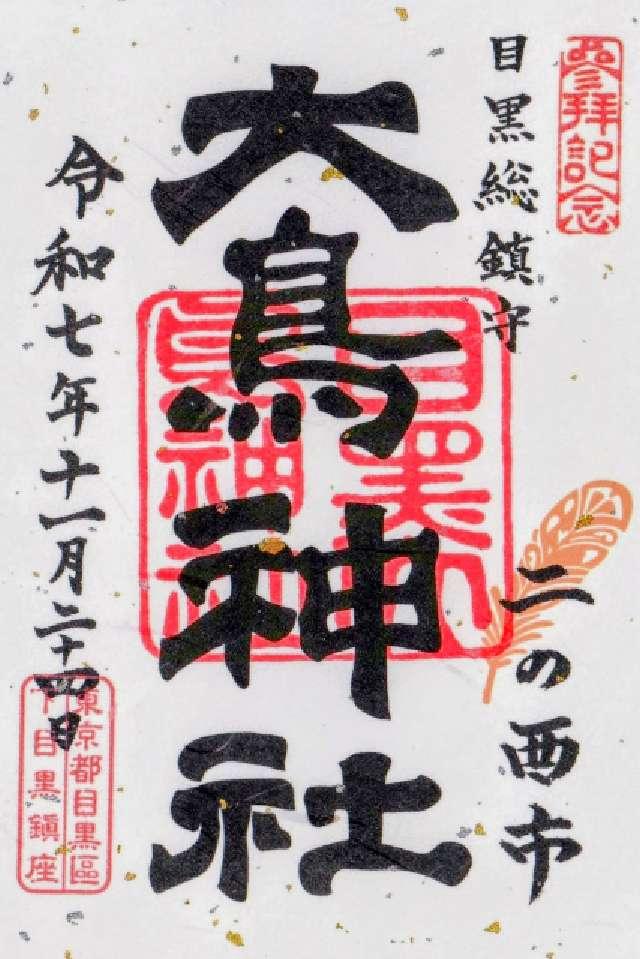 參拝記念
目黒総鎮守
二の酉市
大鳥神社
目黒大
鳥神社
令和七年十一月二十四日
東京都目黒區
下目黒鎮座